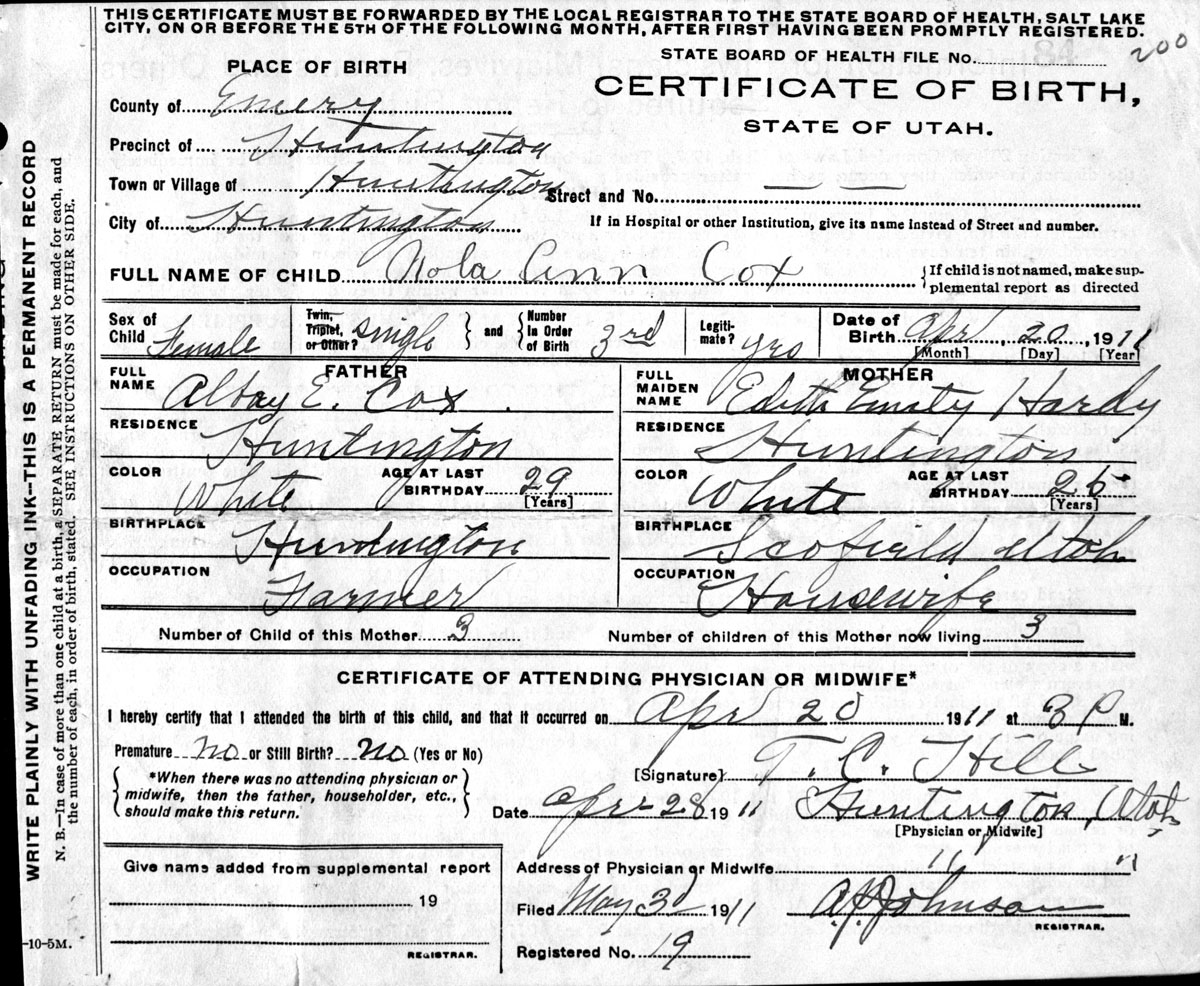 THIS CERTIFICATE MUST BE FORWARDED BY THE LOCAL REGISTRAR TO THE STATE BOARD OF HEALTH, SALT LAKE
CITY, ON OR BEFORE THE 5TH OF THE FOLLOWING MONTH, AFTER FIRST HAVING BEEN PROMPTLY REGISTERED.
STATE BOARD OF HEALTH FILE No. 84 200
PLACE OF BIRTH
CERTIFICATE OF BIRTH,
STATE OF UTAH.
County of Emery
Precinct of Huntington
Town or Village of Huntington Street and No. — —
City of Huntington If in Hospital or other Institution, give its name instead of Street and number.
FULL NAME OF CHILD Nola Ann Cox {If child is not named, make sup-
plemental report as directed
Sex of Child Female Twin, Triplet, or Other? single } and { Number in Order of Birth 3rd Legiti-mate? yes Date of Birth Apr 20, 1911
[Month] [Day] [Year]
FATHER MOTHER
FULL NAME Albay E. Cox FULL MAIDEN NAME Edith Emily Hardy
RESIDENCE Huntington RESIDENCE Huntington
COLOR White AGE AT LAST BIRTHDAY 29 [Years] COLOR White AGE AT LAST BIRTHDAY 25 [Years]
BIRTHPLACE Huntington BIRTHPLACE Scofield Utah
OCCUPATION Farmer OCCUPATION Housewife
Number of Child of this Mother 3 Number of children of this Mother now living 3
CERTIFICATE OF ATTENDING PHYSICIAN OR MIDWIFE*
I hereby certify that I attended the birth of this child, and that it occurred on Apr 20 1911 at 3 P M.
Premature No or Still Birth? No (Yes or No)
[Signature] T. C. Hill
{ *When there was no attending physician or
midwife, then the father, householder, etc.,
should make this return. }
Date Apr 28 1911 Huntington, Utah
[Physician or Midwife]
Give name added from supplemental report
19
REGISTRAR.
Address of Physician or Midwife " "
Filed May 3d 1911 A.P. Johnson
REGISTRAR.
Registered No. 19
-10-5M.
WRITE PLAINLY WITH UNFADING INK—THIS IS A PERMANENT RECORD
N. B.—In case of more than one child at a birth, a SEPARATE RETURN must be made for each, and
the number of each, in order of birth, stated. SEE INSTRUCTIONS ON OTHER SIDE.